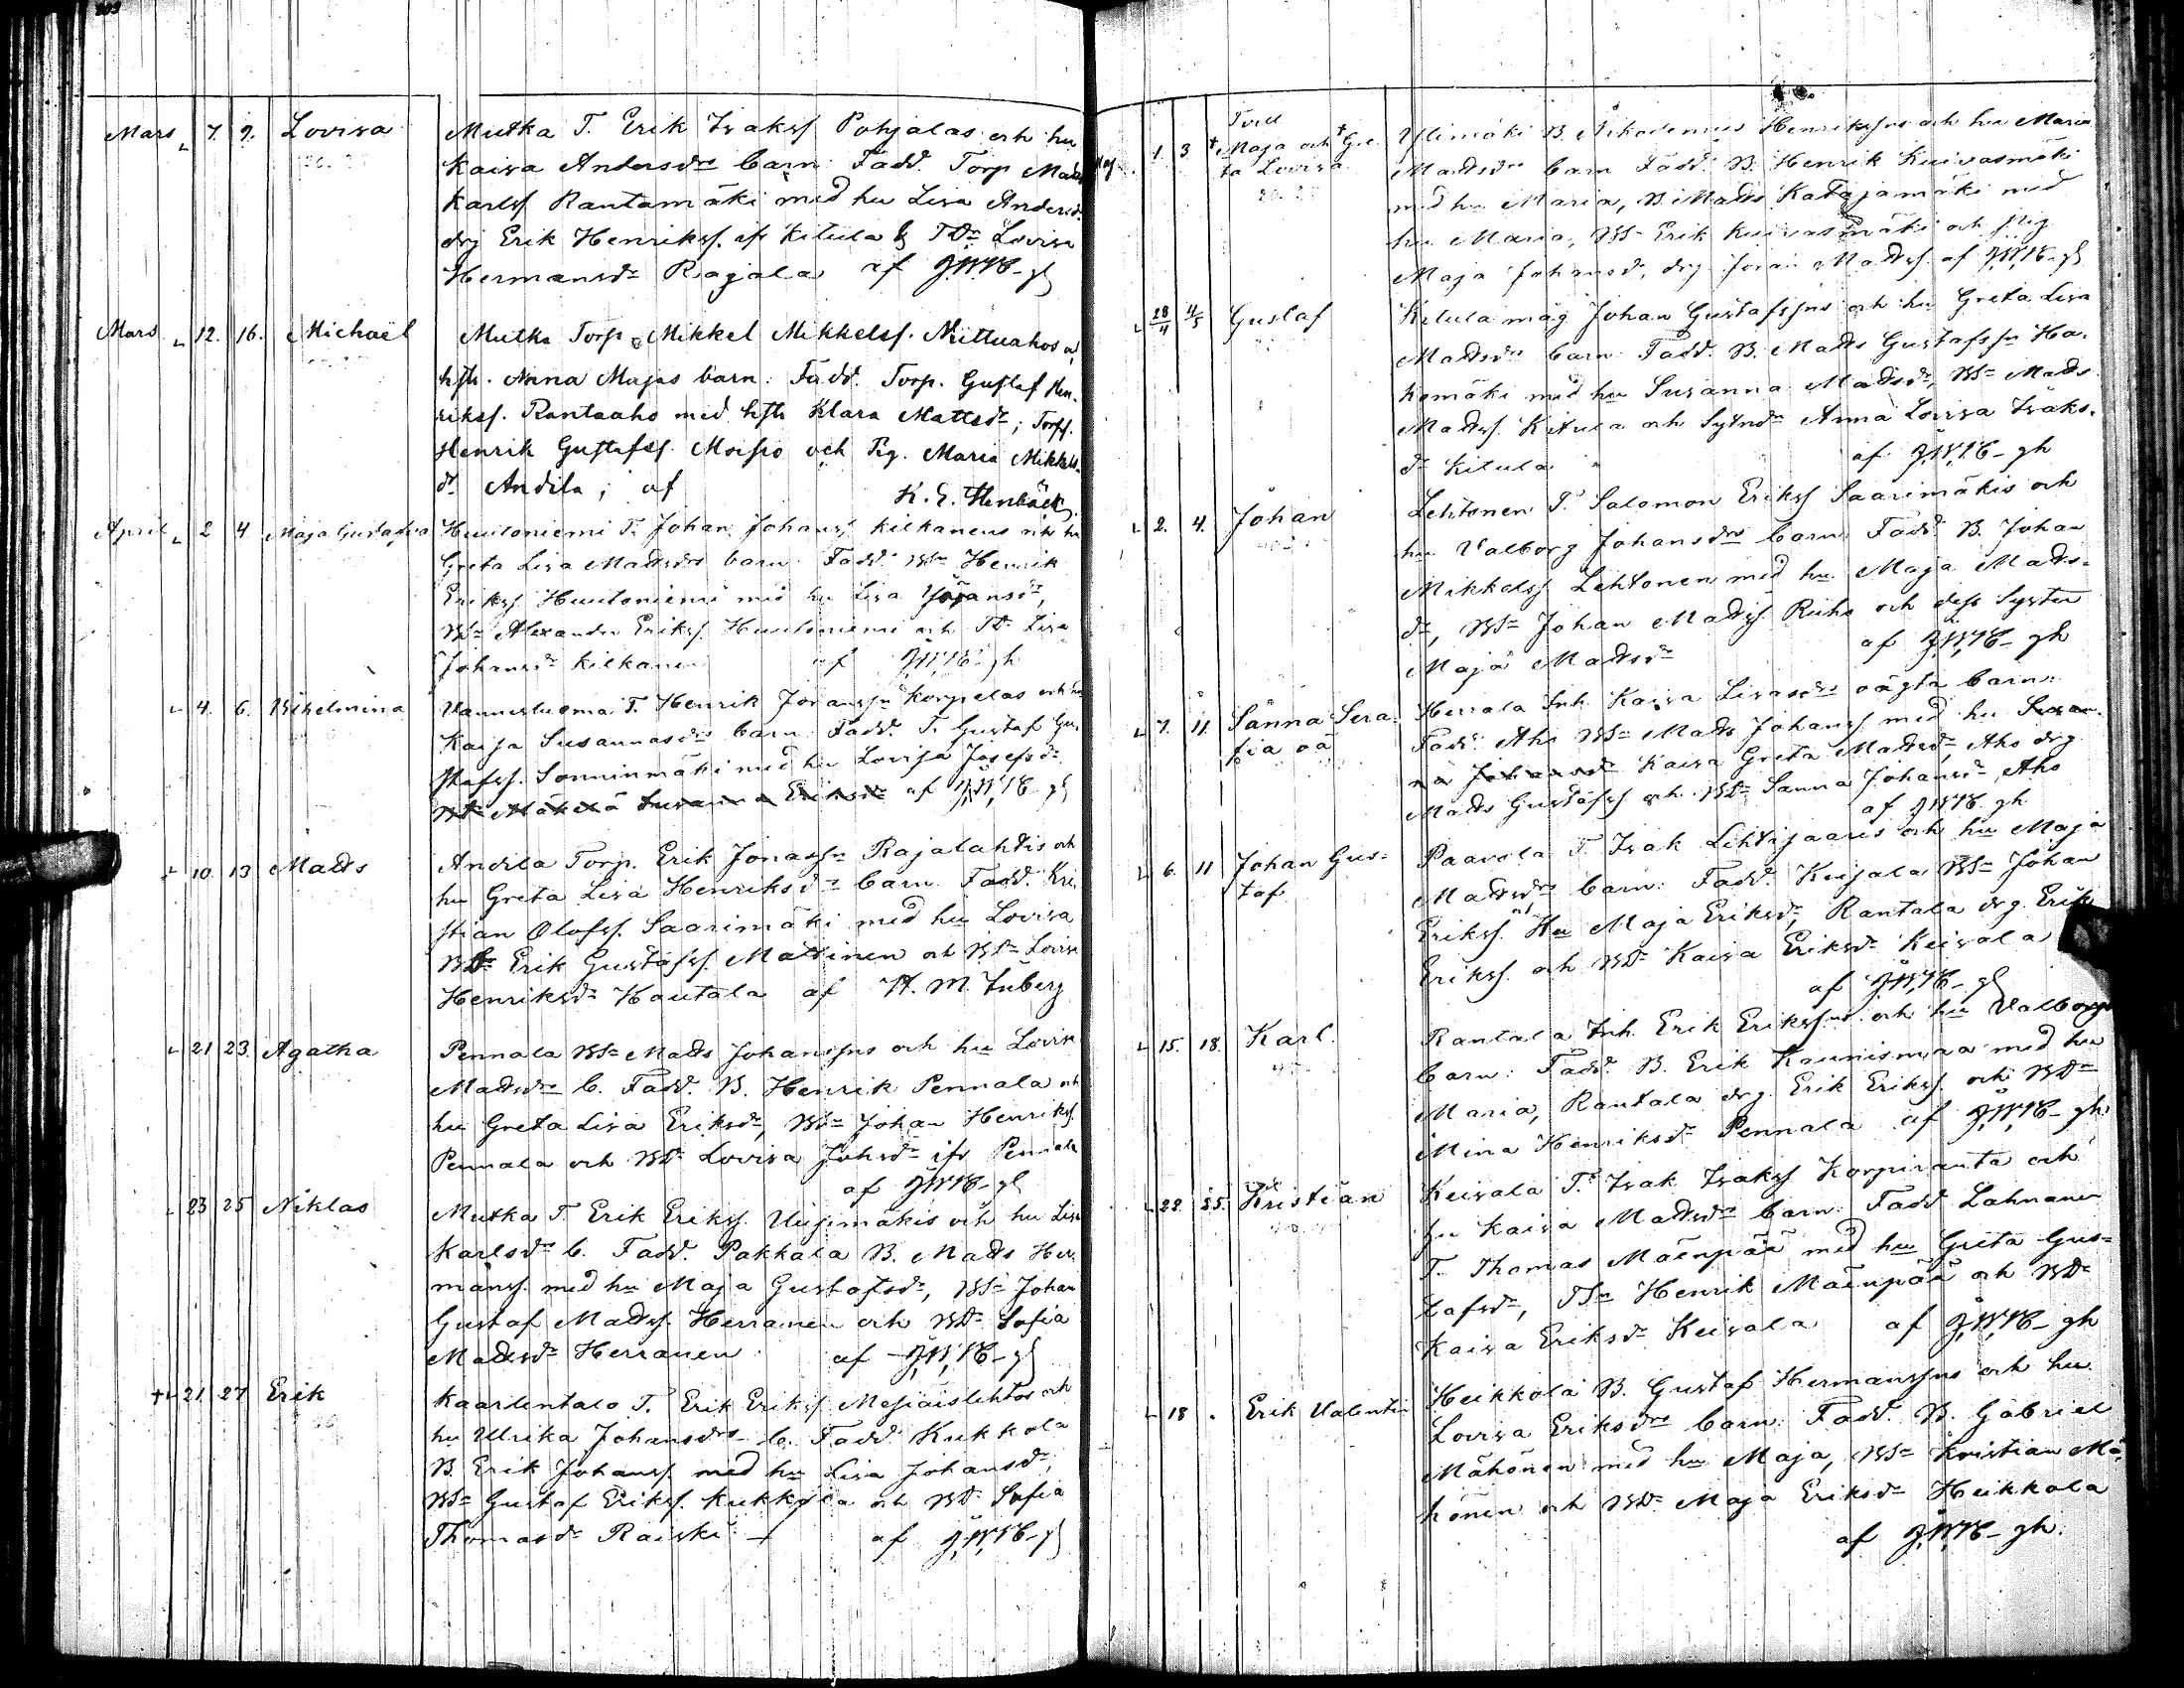 Mars 7. 9. Lovisa Mutka T. Erik Isakss Pohjalas och hu
Kaisa Andersdrs barn: Fadd. Torp Matts
Karlss Rantamäki med hu Lisa Andersdr
drg Erik Henrikss. ifr Kitula & TDr Lovisa
Hermansdr Rajala af
Mars 12. 16. Michaël Mutka Torp Mikkel Mikkelss. Niittuahos o,
hstr. Anna Majas barn: Fadd. Torp. Gustaf Hen-
rikss. Rantaaho med hstr Klara Mattsdr; Torps.
Henrik Gustafss. Moisio och Pig. Maria Mikkels-
dr Andila; af
April 2 4 Maja Gustafva Huuloniemi T. Johan Johanss Kilkanens och hu
Greta Lisa Mattsdrs barn. Fadd. BSn Henrik
Erikss. Huuloniemi med hu Lisa Johansdr,
BSn Alexander Erikss. Huuloniemi och TDr Lisa
Johansdr Kilkanen af
4. 6. Vilhelmina T. Henrik Johanssn Korpelas och hu
Kaisa Susannasdrs barn Fadd. T. Gustaf Gus-
tafss. Sonninmäki med hu Lovisa Josefsdr
BDr Mäkelä Susanna Eriksdr af
10. 13 Matts Andila Torp. Erik Jonassn Rajalahtis och
hu Greta Lisa Henriksdrs barn. Fadd. Kri-
stian Olofss. Saarimäki med hu Lovisa
BSn Erik Gustafss. Mattinen och BDr Lovisa
Henriksdr Hautala af
21 23. Agatha Pennala BSn Matts Johanssns och hu Lovisa
Mattsdrs b. Fadd. B. Henrik Pennala och
hu Greta Lisa Eriksdr, BSn Johan Henrikss
Pennala och BDr Lovisa Johsdr ifr Pennala
af
23 25 Niklas Mutka T. Erik Erikss. och hu Lisa
Karlsdrs b. Fadd. Pakkala B. Matts Her-
manss. med hu Maja Gustafsdr, BSn Johan
Gustaf Mattss. Herranen och BDr Sofia
Mattsdr Herranen af
+ 21 27 Erik Kaarlentalo T. Erik Erikss och
hu Ulrika Johansdrs b. Fadd. Kukkola
B. Erik Johanss med hu Lisa Johansdr,
BSn Gustaf Erikss. Kukkola och BDr Sofia
Thomasdr Raiski af
Maj 1. 3. Maja och Gre-
ta Lovisa Ylimäki B. Henrikssns och hu Maria
Mattsdrs barn Fadd. B. Henrik Kuivasmäki
med hu Maria, B. Matts Katajamäki med
hu Maria, BSn Erik Kuivasmäki och pig
Maja Johansdr, drg Johan Mattss. af
28/4 4/5 Gustaf Kitula måg Johan Gustafssns och hu Greta Lisa
Mattsdrs barn Fadd. B. Matts Gustafssn Ha-
komäki med hu Susanna Mattsdr, BSn Matts
Mattss. Kitula och Anna Lovisa Isaks-
dr Kitula af
2. 4. Johan Lehtonen T. Salomon Erikss Saarimäkis och
hu Valborg Johansdrs barn: Fadd. B. Johan
Mikkelss Lehtonen med hu Maja Matts-
dr, BSn Johan Mattss. och dess Syster
Maja Mattsdr af
7. 11. Sanna Sera-
fia oä Herrala Inh. Kaisa Lisasdrs oägta barn:
Fadd. Aho BSn Matts Johanss med hu Susan-
na Johansdr Kaisa Greta Mattsdr, Aho drg
Matts Gustafss och BDr Sanna Johansdr Aho
af
6. 11 Johan Gus-
taf Paavola T. Isak Lehtisaaris och hu Maja
Mattsdrs barn: Fadd. Keisala BSn Johan
Erikss. Hu Maja Eriksdr, Rantala drg. Erik
Erikss. och BDr Kaisa Eriksdr Keisala
af
15. 18. Karl. Rantala Inh. Erik Erikssns och hu Valborgs
barn: Fadd. B. Erik Kaunismaa med hu
Maria, Rantala drg. Erik Erikss. och BDr
Mina Henriksdr Pennala af
22. 25. Kristian Keisala T. Isak Isakss Korpiranta och
hu Kaisa Mattsdrs barn Fadd Lahnanen
T. Thomas Mäenpää med hu Greta Gus-
tafsdr, TSn Henrik Mäenpää och BDr
Kaisa Eriksdr Keisala af
18 . Erik Valentin Heikkola B. Gustaf Hermanssns och hu
Lovisa Eriksdrs barn: Fadd. B. Gabriel
Mähönen med hu Maja, BSn Kristian Mä-
hönen och BDr Maja Eriksdr Heikkola
af